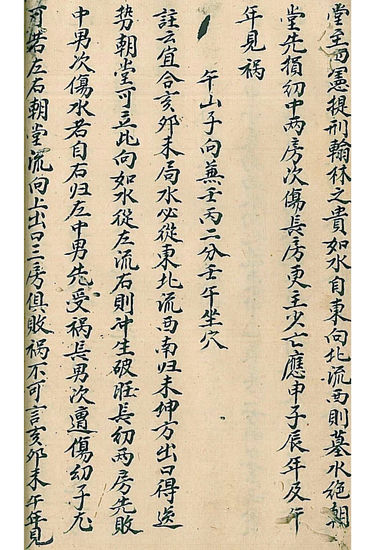 堂主西憲提刑翰林之貴如水自東向北流西則墓水絕朝
堂先損幼中两房次傷長房更主少亡應申子辰年及午
年見禍
午山子向兼壬丙二分壬午坐穴
註云宜合亥卯未局水必從東北流西南归未坤方出口得送
势朝堂可立此向如水從左流右則冲生破旺長幼两房先敗
中男次傷水若自右归左中男先受禍長男次遭傷幼子尤
可若左右朝堂流向上出口三房俱敗禍不可言亥卯未午年見